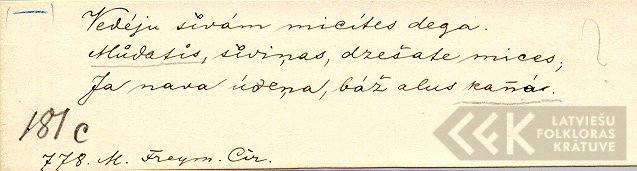 Vedēju sivām micītes dega.
Mūdatīs, siviņas, dzešate mices,
Ja nava ūdeņa, bāž alus kaņās.
181 c
778. M. Freym. Cīr.
LATVIEŠU
FOLKLORAS
KRĀTUVE